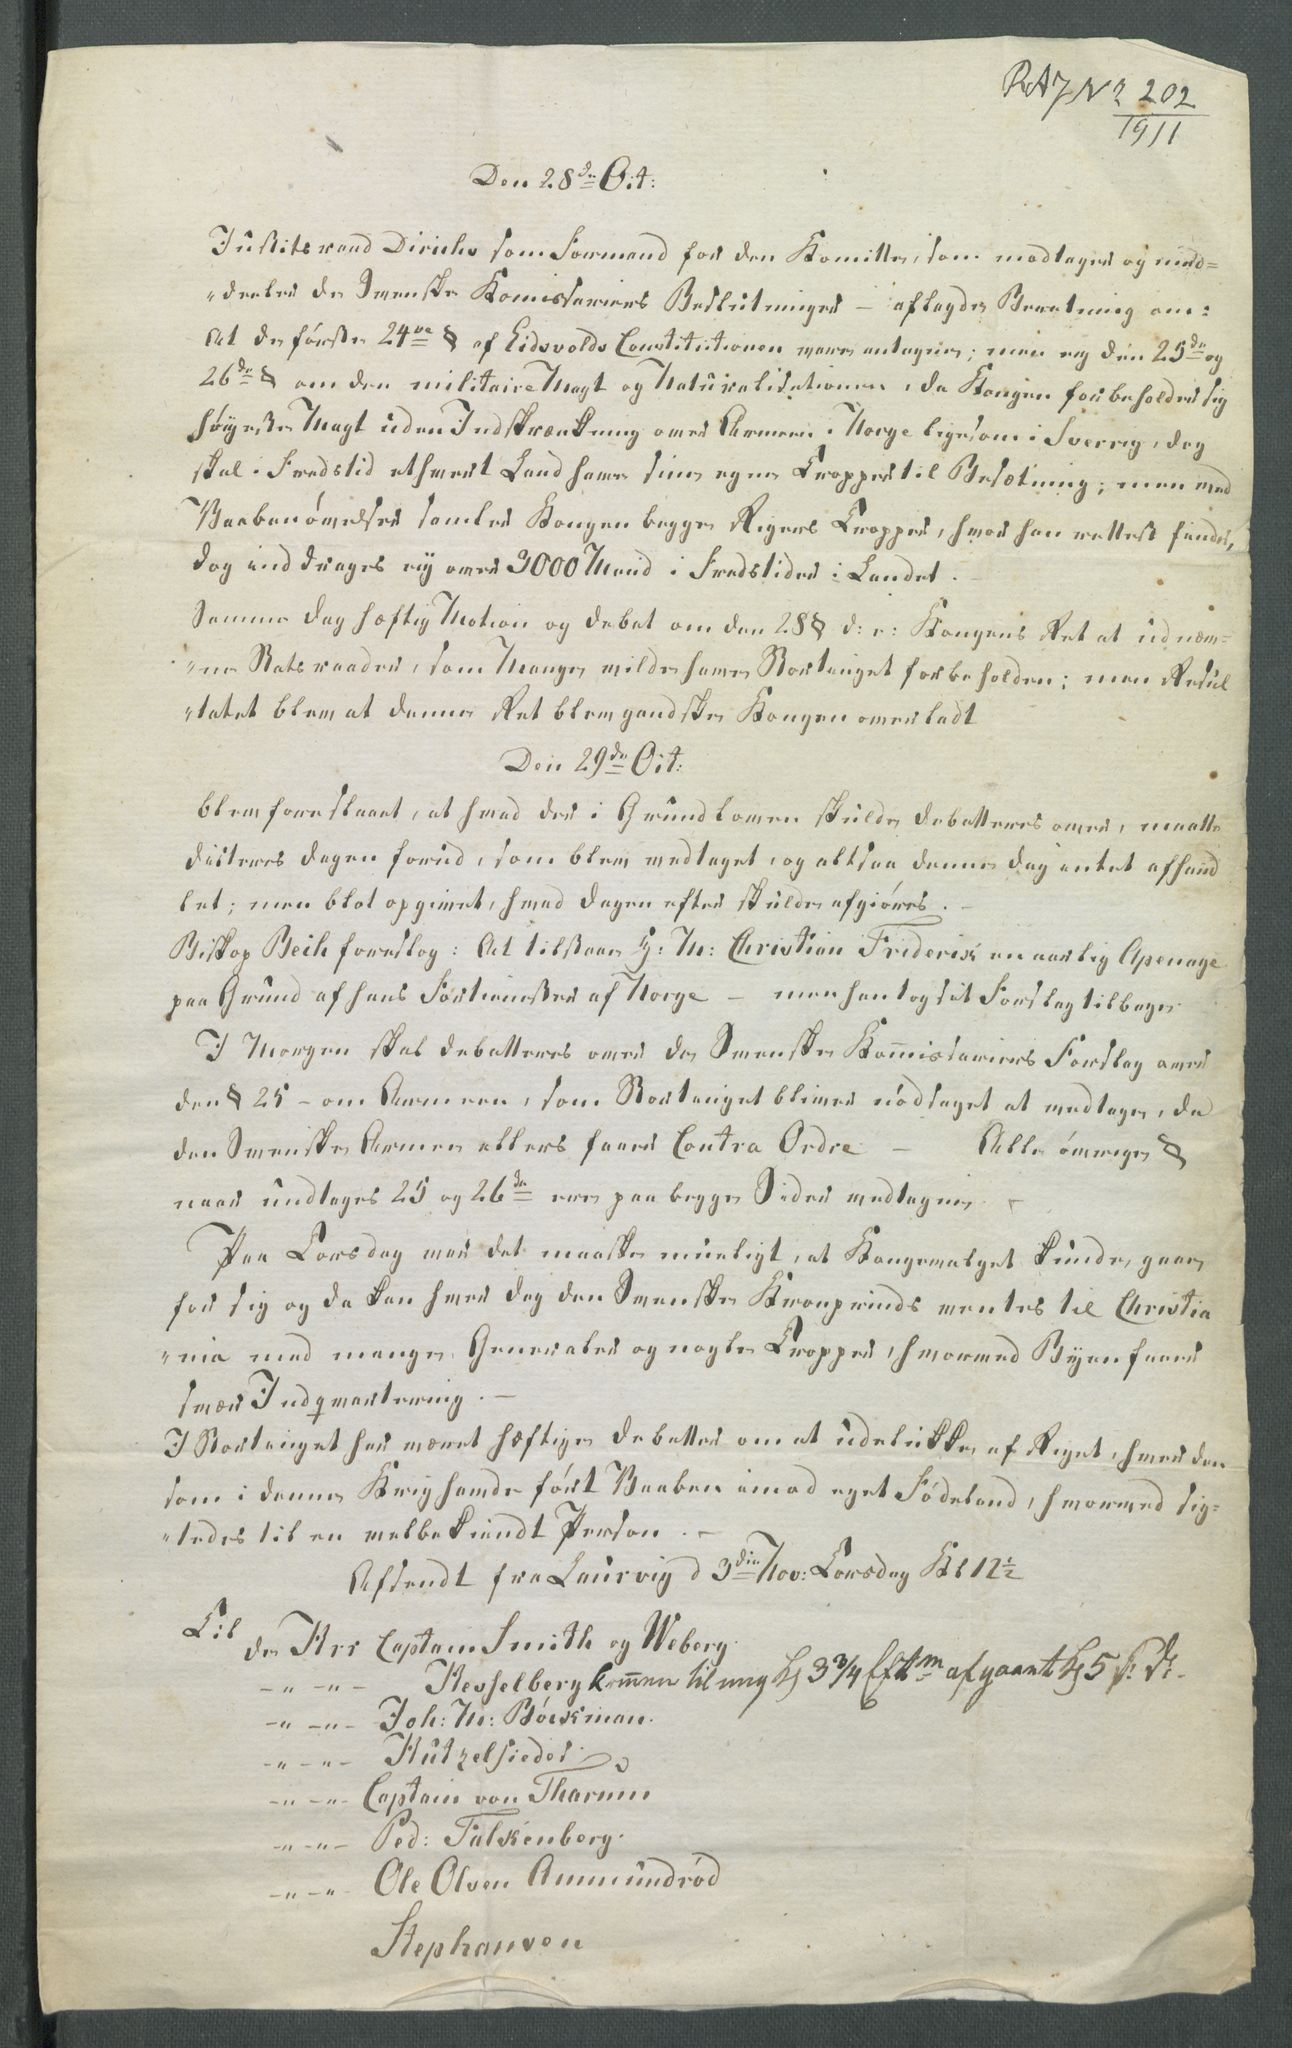 RAJ No 202
1911
Den 28de Oct:
Justitsraad Diriks som Formand for den Komitte, som modtager og med=
„deeler de Svenske Komissariers Beslutninger – aflagde Beretning om:
At de første 24ve § af Eidsvolds Constitutionen vare antagne; men ey den 25de og
26de § om den militaire Magt og Naturalisationen, da Kongen forbeholder sig
høyeste Magt uden Indskrænkning over Armeen i Norge ligesom i Sverrig, dog
skal i Fredstid ethvert Land have sine egne Tropper til Besætning; men ved
Vaabenøvelser samler Kongen begge Rigers Tropper, hvor han rettest finder,
dog inddrages ey over 3000 Mand i Fredstider i Landet.
Samme Dag hæftig Motion og Debat om den 28 § d: e: Kongens Ret at udnæv=
„ne Statsraader, som Mange vilde have Stortinget forbeholden; men Resul
„tatet blev at denne Ret blev gandske Kongen overladt
Den 29de Oct:
blev foreslaaet, at hvad der i Grundloven skulde debatteres over, maatte
dicteres dagen forud, som blev vedtaget, og altsaa denne dag intet afhand
let; men blot opgivet, hvad dagen efter skulde afgiøres. –
Biskop Bech foreslog: At tilstaae H: M: Christian Friderik en aarlig Apenage
paa Grund af hans Fortienester af Norge – men han tog sit Forslag tilbage
I Morgen skal debatteres over de Svenske Kom̄issariers Forslag over
den § 25 – om Armeen, som Stortinget bliver nødsaget at vedtage, da
den Svenske Armee ellers faaer Contra Ordre – Alle øvrige §
naar undtages 25 og 26de ere paa begge Sider vedtagne.
Paa Torsdag var det maaske mueligt, at Kongevalget kunde gaae
for sig og da kan hver dag den Svenske Kronprinds ventes til Christia
„nia med mange Generaler og nogle Tropper, hvorved Byen faaer
svær Indqvartering. –
I Stortinget har været hæftige debatter om at udelukke af Riget, hver den
som i denne Krig havde ført Vaaben imod eget Fødeland, hvorved sig=
„tedes til en velbekiendt Person. –
Afsendt fra Laurvig d 3die Nov: Torsdag Kl 12½
Til
de Hrr Captain Smith og Weborg.
–„–„– Hesselberg kom̄en til mig Kl 3¾ Eftm afgaaet Kl 5
–„–„– Joh: M: Böckman.
–„–„– Kutzelsieder.
–„–„– Captain von Tharum
–„–„– Ped: Falkenberg.
–„–„– Ole Olsen Ammundrød
Stephansen